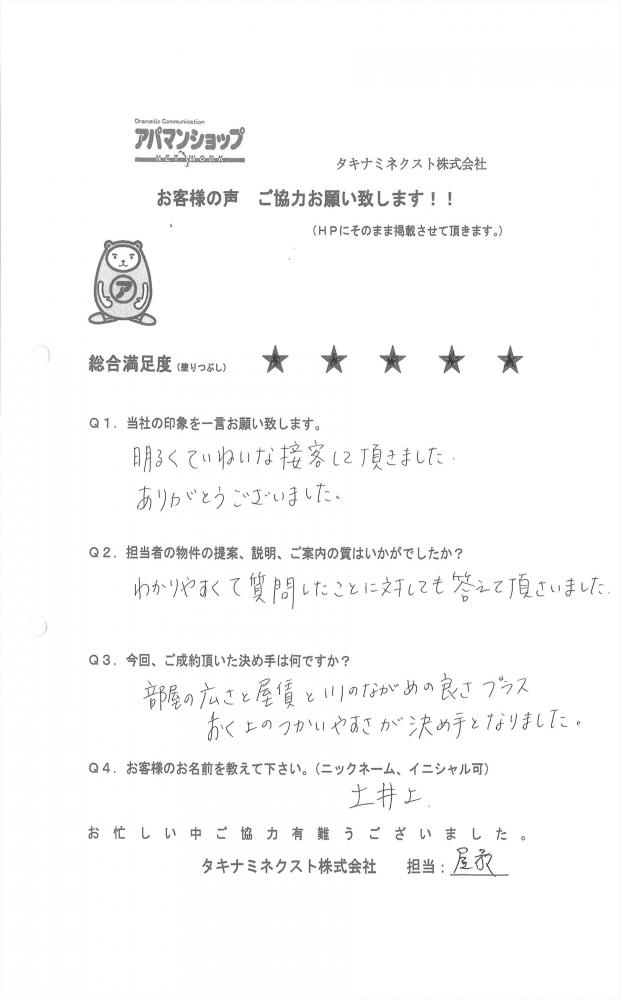 Dramatic Communication
アパマンショップ
NETWORK
タキナミネクスト株式会社
お客様の声 ご協力お願い致します！！
（ＨＰにそのまま掲載させて頂きます。）
ア
総合満足度（塗りつぶし） ★ ★ ★ ★ ★
Ｑ１．当社の印象を一言お願い致します。
明るくていねいな接客して頂きました.
ありがとうございました。
Ｑ２．担当者の物件の提案、説明、ご案内の質はいかがでしたか？
わかりやすくて質問したことに対しても答えて頂きいました.
Ｑ３．今回、ご成約頂いた決め手は何ですか？
部屋の広さと屋賃と川のながめの良さプラス
おく上のつかいやすさが決め手となりました。
Ｑ４．お客様のお名前を教えて下さい。（ニックネーム、イニシャル可）
土井上.
お忙しい中ご協力有難うございました。
タキナミネクスト株式会社 担当：屋敷